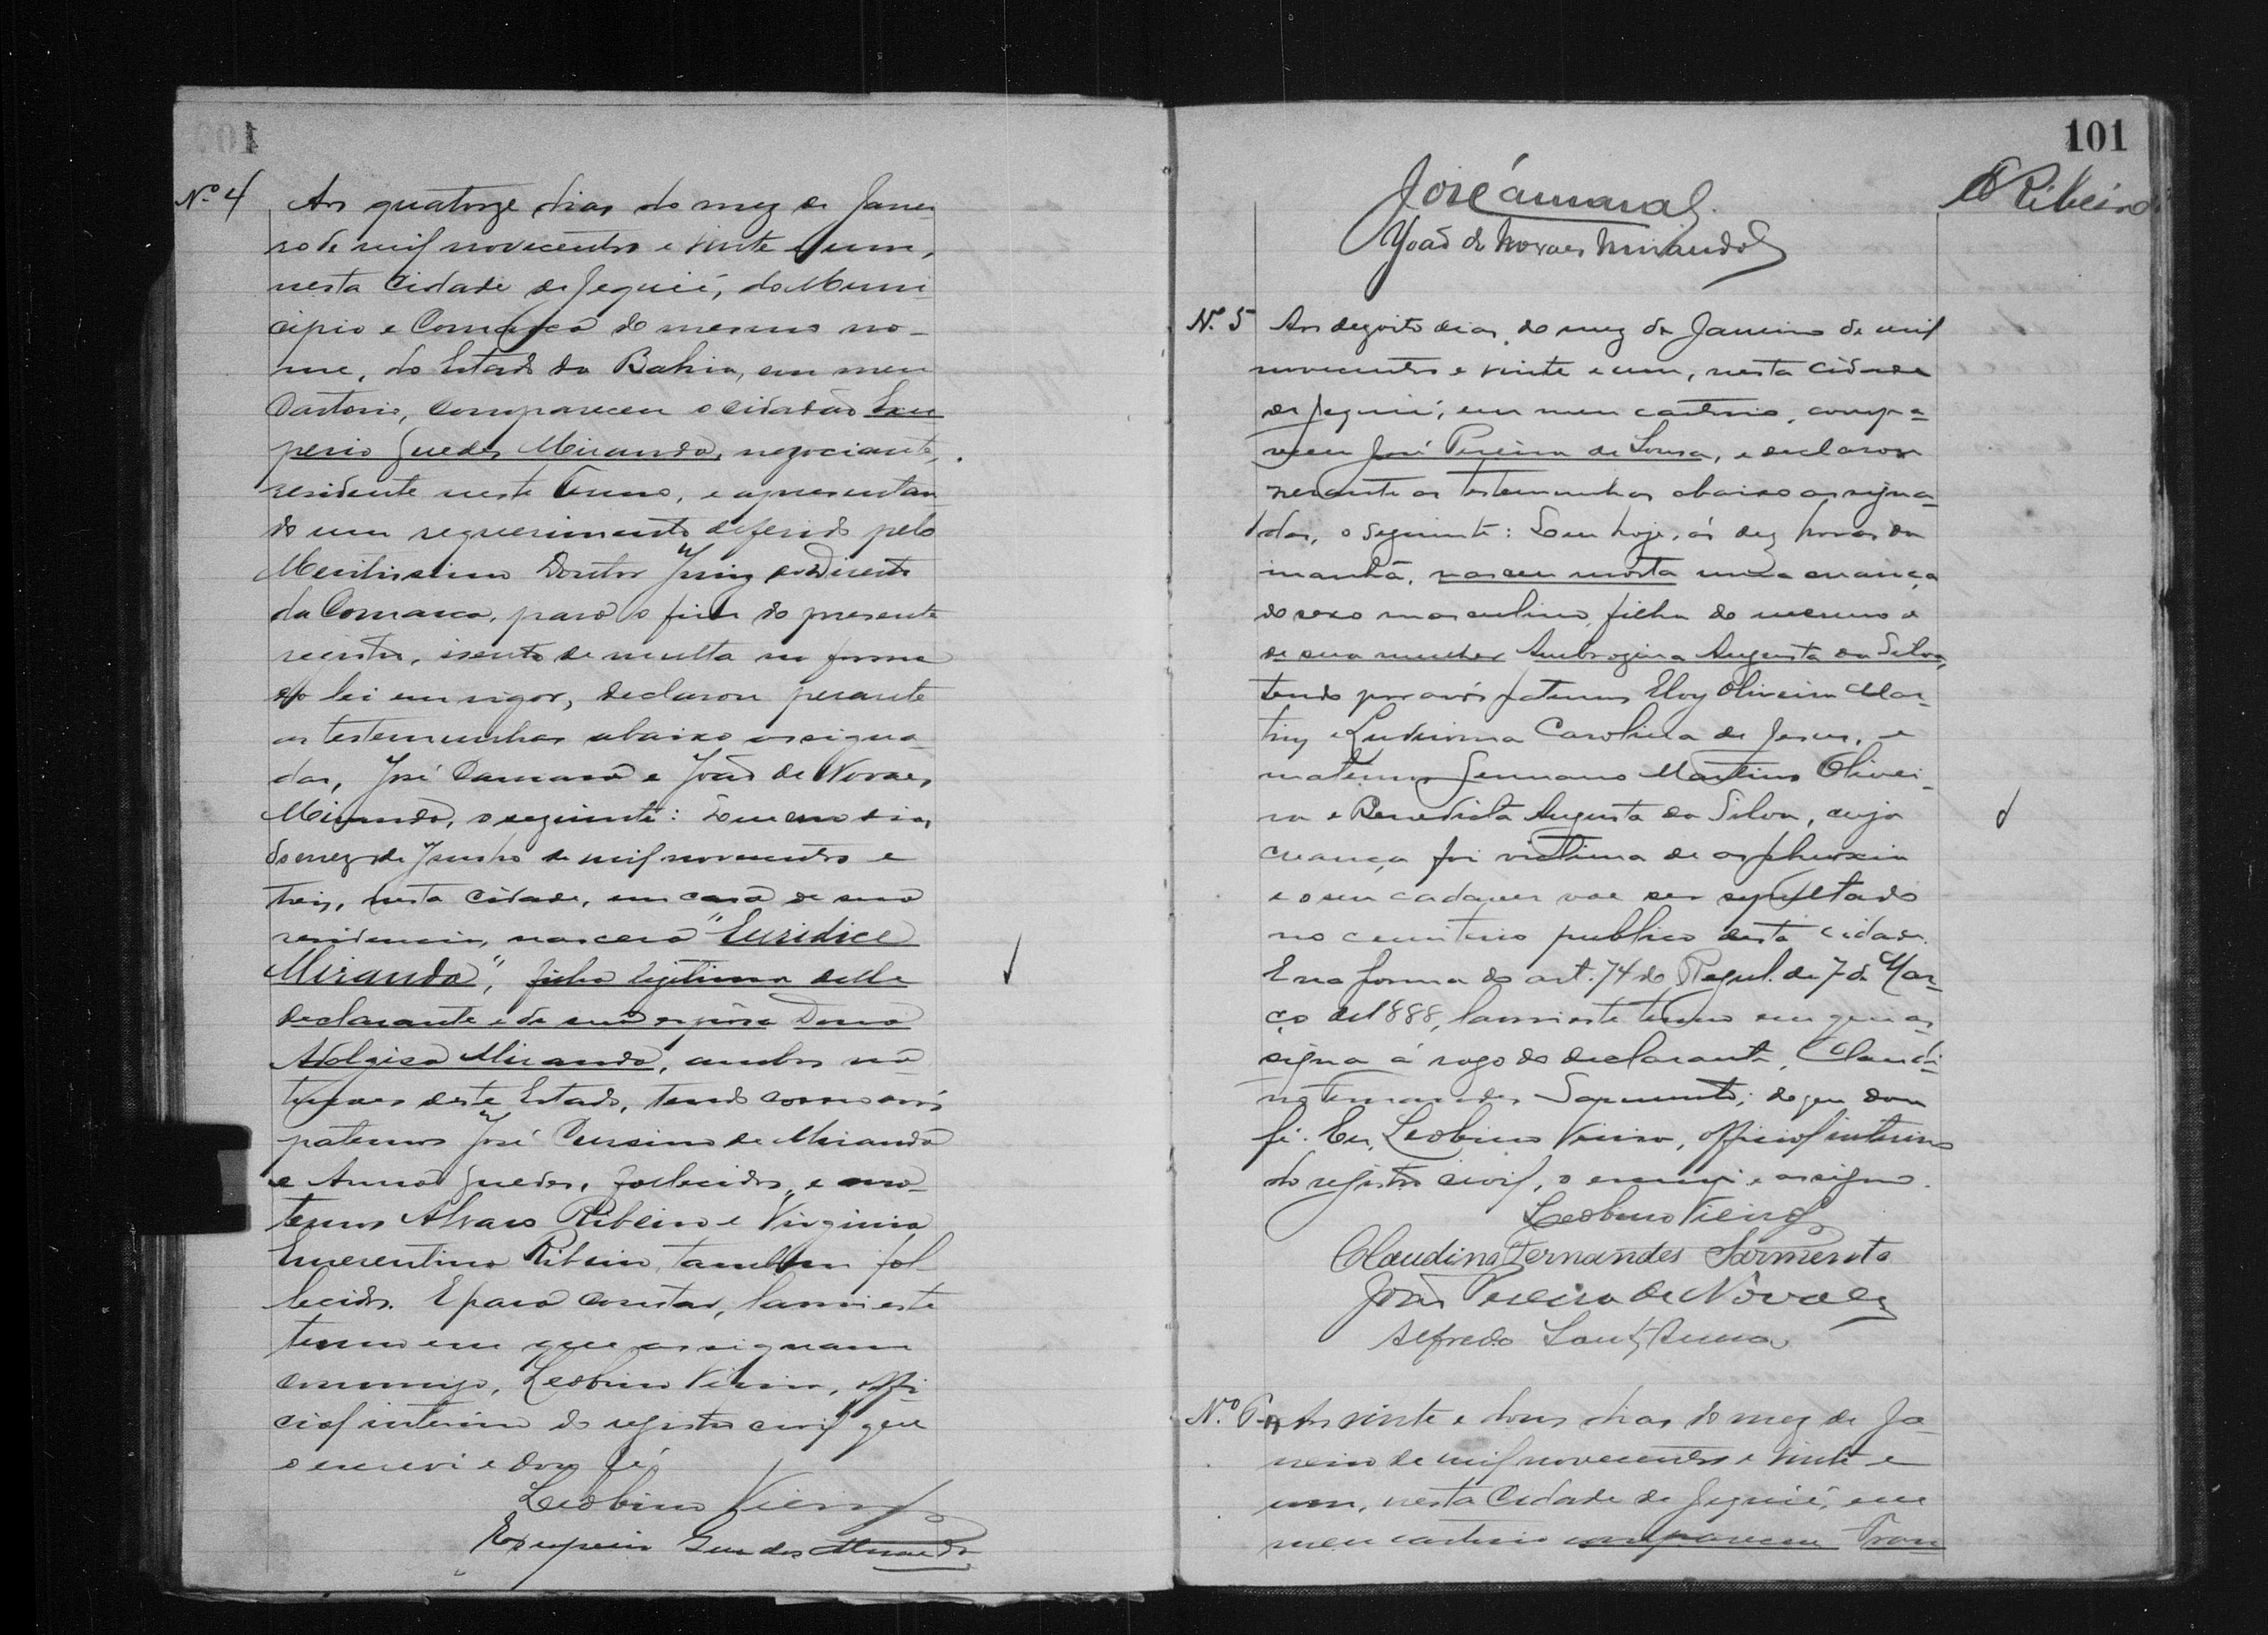 Nº 4 Aos quatorze dias do mez de Janei
ro de mil novecentos e vinte e um,
nesta Cidade de Jequié, do Muni
cipio e Comarca do mesmo no-
me, do Estado da Bahia, em meu
Cartorio, compareceu o cidadão Exu
perio Guedes Miranda, negociante,
residente neste Termo, e apresentan
do um requerimento deferido pelo
Meritissimo Doutor Juiz de Direito
da Comarca, para o fim do presente
registro, isento de multa na forma
da lei em vigor, declarou perante
as testemunhas abaixo assigna-
das, José Camará e João de Novaes
Miranda, o seguinte: Que em dias
do mez de Junho de mil novecentos e
trez, nesta cidade, em casa de sua
residencia, nascera "Euridice
Miranda", filha legitima delle
declarante e de sua espôsa Dona
Adalgisa Miranda, ambos na
turaes deste Estado, tendo como avós
paternos José Cursino de Miranda
e Anna Guedes, fallecidos, e ma-
ternos Alvaro Ribeiro e Virginia
Emerentina Ribeiro, tambem fal
lecidos. E para constar, lavrei este
termo em que assignam
commigo, Leobino Vieira, offi-
cial interino do registro civil que
o escrevi e dou fé.
Leobino Vieira
Exuperio Guedes Miranda
101
A Ribeiro
José
João de Novaes Miranda
Nº 5 Aos dezoito dias do mez de Janeiro de mil
novecentos e vinte e um, nesta cidade
de Jequié, em meu cartorio, compa-
receu José Pereira de Sousa, e declarou
perante as testemunhas abaixo assigna-
das, o seguinte: Que hoje, ás dez horas da
manhã, nasceu morta uma creança
do sexo masculino, filha do mesmo e
de sua mulher Ambrozina Augusta da Silva,
tendo por avós paternos Eloy Oliveira Mar-
tins e Carolina de Jesus, e
maternos Germano Martins Olivei-
ra e Benedicta Augusta da Silva, cuja
creança foi victima de asphyxia
e o seu cadaver vae ser sepultado
no cemiterio publico desta cidade.
E na forma do art. 74 do Regul. de 7 de Mar-
ço de 1888, lavrei este termo em que as-
signa á rogo do declarante, Claudi-
no Fernandes Sarmento; do que dou
fé. Eu, Leobino Vieira, official interino
do registro civil, o escrevi e assigno.
Leobino Vieira
Claudino Fernandes Sarmento
João Pereira de Novaes
Alfredo Sant'Anna
N.º 6 Aos vinte e dous dias do mez de Ja-
neiro de mil novecentos e vinte e
um, nesta Cidade de Jequié, em
meu cartorio compareceu Fran